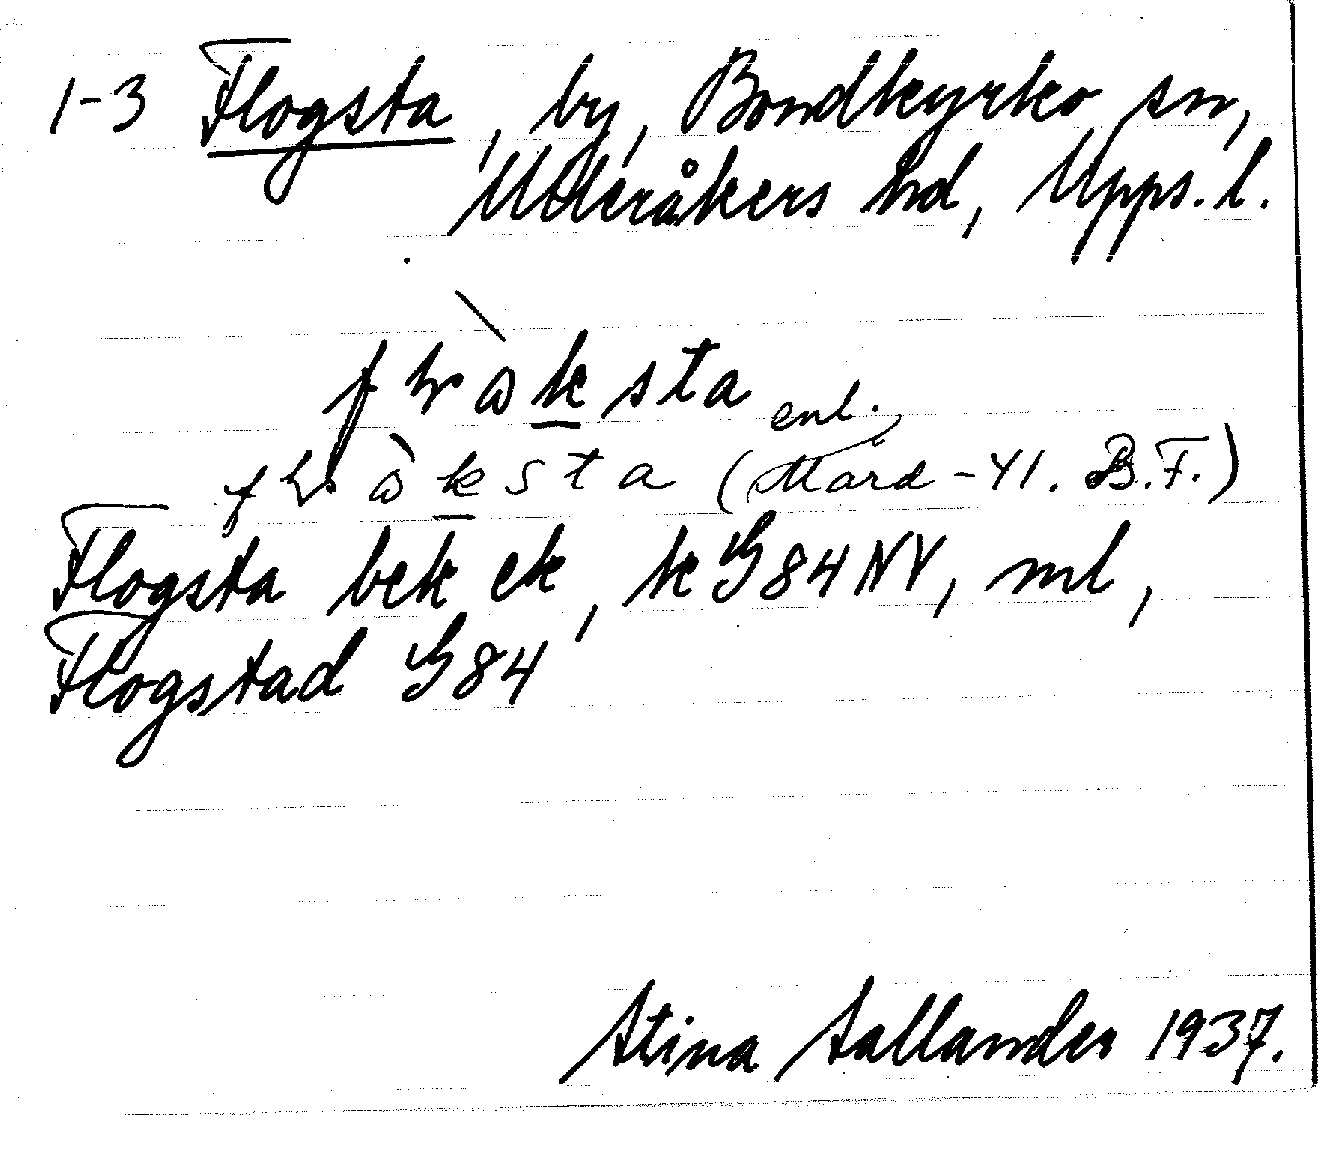 1-3 Flogsta, by, Bondkyrko sn,
Ulleråkers hd, Upps. l.
enl.
(Mård -41. B.F.)
Flogsta bek ek, k G84 NV, ml,
Flogstad G84
Stina Sallander 1937.